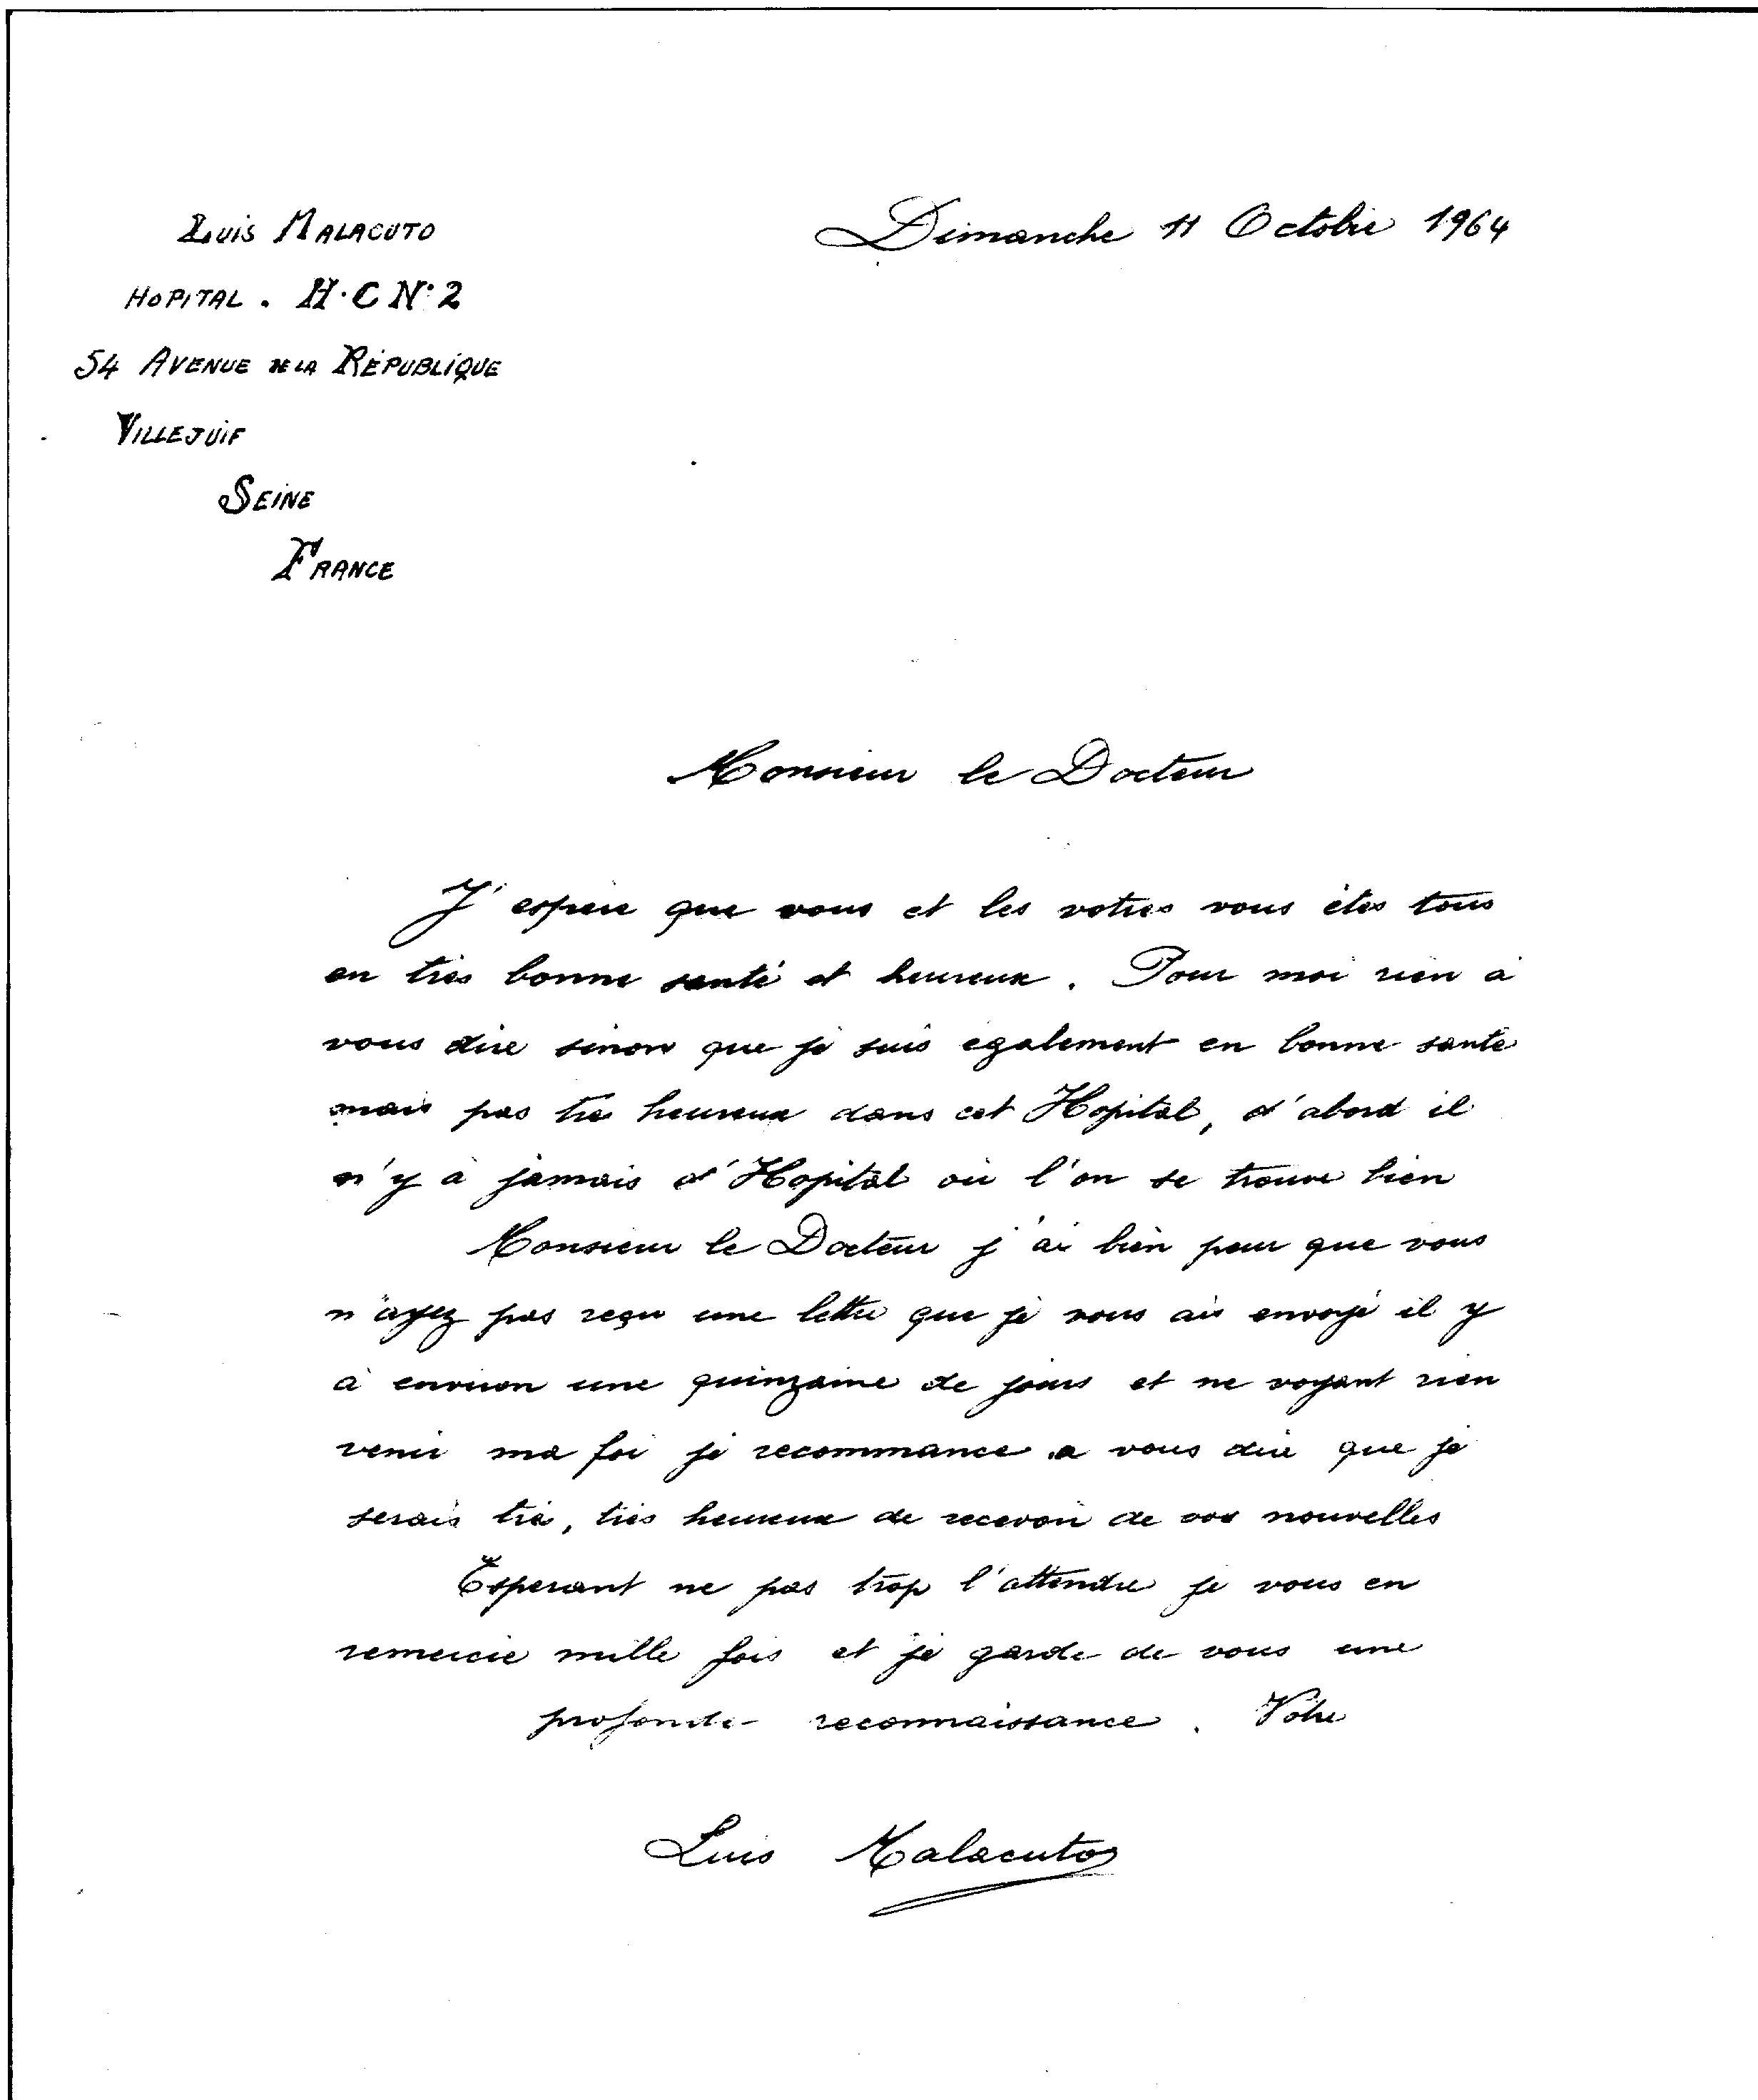 Luis MALACUTO
HOPITAL. H.C N°2
54 AVENUE DE LA RÉPUBLIQUE
VILLEJUIF
SEINE
FRANCE
Dimanche 11 Octobre 1964
Monsieur le Docteur
J'espere que vous et les votres vous étes tous
en tres bonne santé et heureux. Pour moi rien à
vous dire sinon que je suis également en bonne santé
mais pas tres heureux dans cet Hopital, d'abord il
n'y à jamais d'Hopital où l'on se trouve bien
Monsieur le Docteur j'ai bien peur que vous
n'ayez pas reçu une lettre que je vous ais envoyé il y
à environ une quinzaine de jours et ne voyant rien
venir ma foi je recommance a vous dire que je
serais très, très heureux de recevoir de vos nouvelles
Esperant ne pas trop l'attendre je vous en
remercie mille fois et je garde de vous une
profonde reconnaissance. Votre
Luis Malacuto